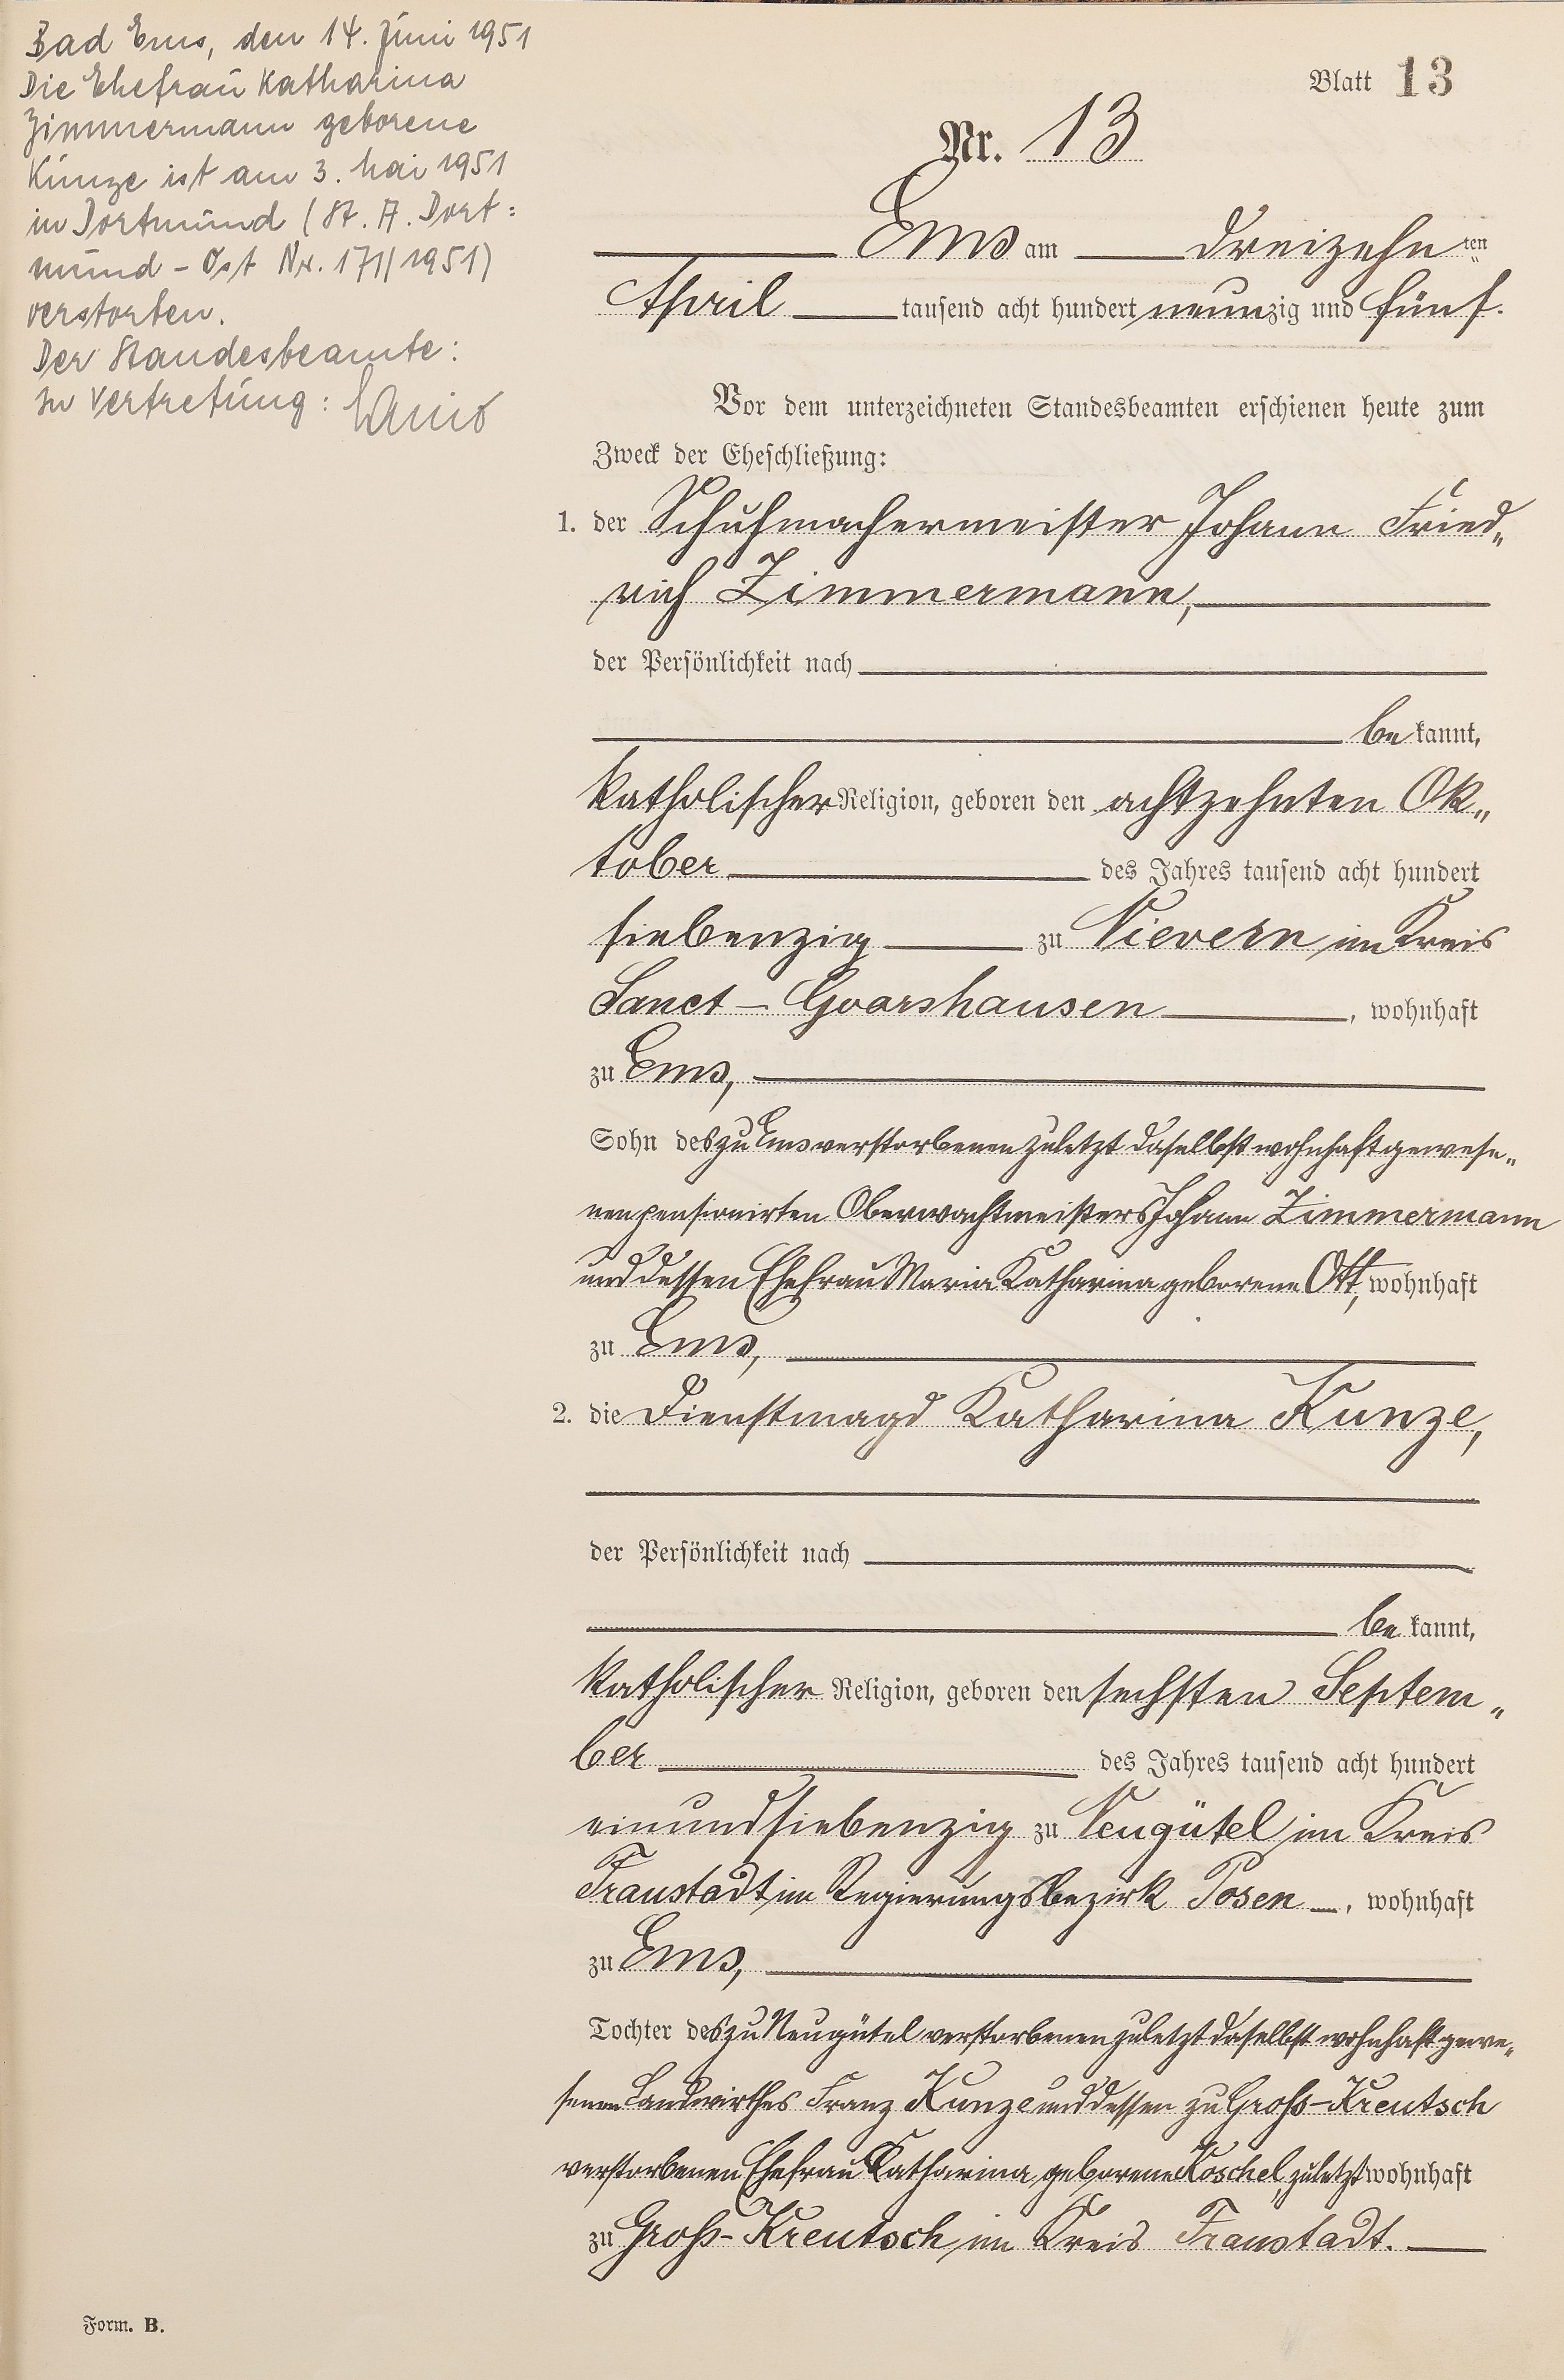 Bad Ems, den 14. Juni 1951
Die Ehefrau Katharina
Zimmermann geborene
Kunze ist am 3. Mai 1951
in Dortmund (St. A. Dort=
mund - Ost Nr. 171/1951)
verstorben.
Der Standesbeamte:
In Vertretung:
Blatt 13
Nr. 13
Ems am dreizehn ten
April tausend acht hundert neunzig und fünf.
Vor dem unterzeichneten Standesbeamten erschienen heute zum
Zweck der Eheschließung:
1. der Schuhmachermeister Johann Fried„
rich Zimmermann,
der Persönlichkeit nach
be kannt,
katholischer Religion, geboren den achtzehnten Ok„
tober des Jahres tausend acht hundert
siebenzig zu Nievern im Kreis
Sanct - Goarshausen, wohnhaft
zu Ems,
Sohn des zu Ems verstorbenen zuletzt daselbst wohnhaft gewese„
nen pensionirten Oberwachtmeisters Johann Zimmermann
und dessen Ehefrau Maria Katharina geborene Ott, wohnhaft
zu Ems,
2. die Dienstmagd Katharina Kunze,
der Persönlichkeit nach
be kannt,
katholischer Religion, geboren den sechsten Septem„
ber des Jahres tausend acht hundert
einundsiebenzig zu Neugütel im Kreis
Fraustadt im Regierungsbezirk Posen, wohnhaft
zu Ems,
Tochter des zu Neugütel verstorbenen zuletzt daselbst wohnhaft gewe„
senen Landwirthes Franz Kunze und dessen zu Groß-Kreutsch
verstorbenen Ehefrau Katharina geborene Koschel, zuletzt wohnhaft
zu Groß-Kreutsch im Kreis Fraustadt.
Form. B.